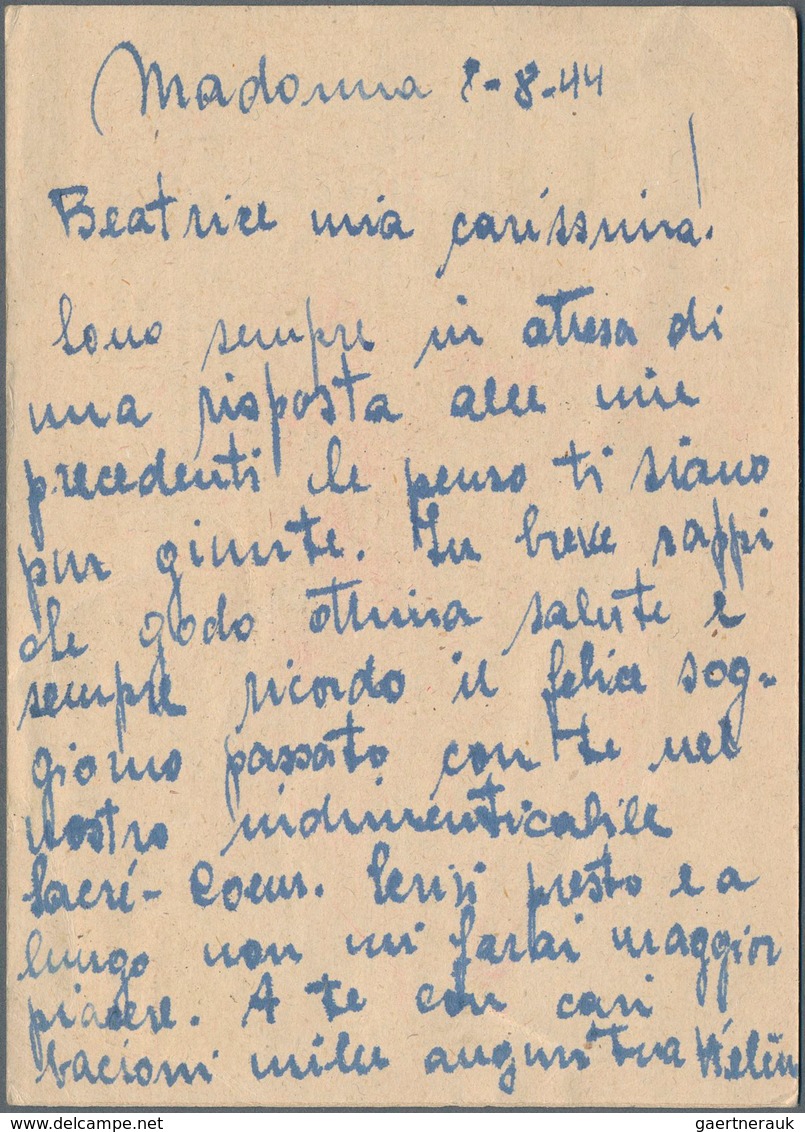 Madonna 8-8-44
Beatrice mia carissima!
Sono sempre in attesa di
una risposta alle mie
precedenti che penso ti siano
pur giunte. In breve sappi
che godo ottima salute e
sempre ricordo il felice sog-
giorno passato con te nel
nostro indimenticabile
Sacré-Coeur. Scrivi presto e a
lungo non mi farai maggior
piacere. A te con cari
bacioni mille auguri tua
gaertnerauk